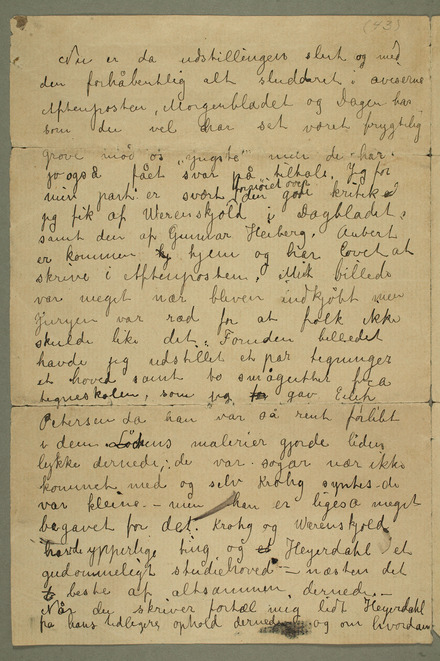 (43)
Nu er da udstillingen slut og med
den forhåbentlig alt sludderet i aviserne
Aftenposten, Morgenbladet og Dagen har
som du vel har set været frygtelig
grove mod os „yngste" men de har
jo også fået svar på tiltale. Jeg for
min part er svært fornøiet over den gode kritik
jeg fik af Werenskjold i Dagbladet,
samt den af Gunnar Heiberg. Aubert
er kommen hjem og har lovet at
skrive i Aftenposten. Mit billede
var meget nær bleven indkjøbt men
Juryen var ræd for at folk ikke
skulde like det. Foruden billedet
havde jeg udstillet et par tegninger
et hoved samt to smågutter fra
tegneskolen, som jeg gav Eilif
Petersen da han var så rent forlibt
i dem. malerier gjorde liden
lykke dernede; de var sogar nær ikke
kommet med og selv Krohg syntes de
var kleine – men han er ligeså meget
begavet for det. Krohg og Werenskjold
havde ypperlige ting og Heyerdahl et
gudommeligt studiehoved – næsten det
beste af altsammen dernede. –
Når du skriver fortæl mig lidt Heyerdahl
fra hans tidligere ophold dernede og om hvordan